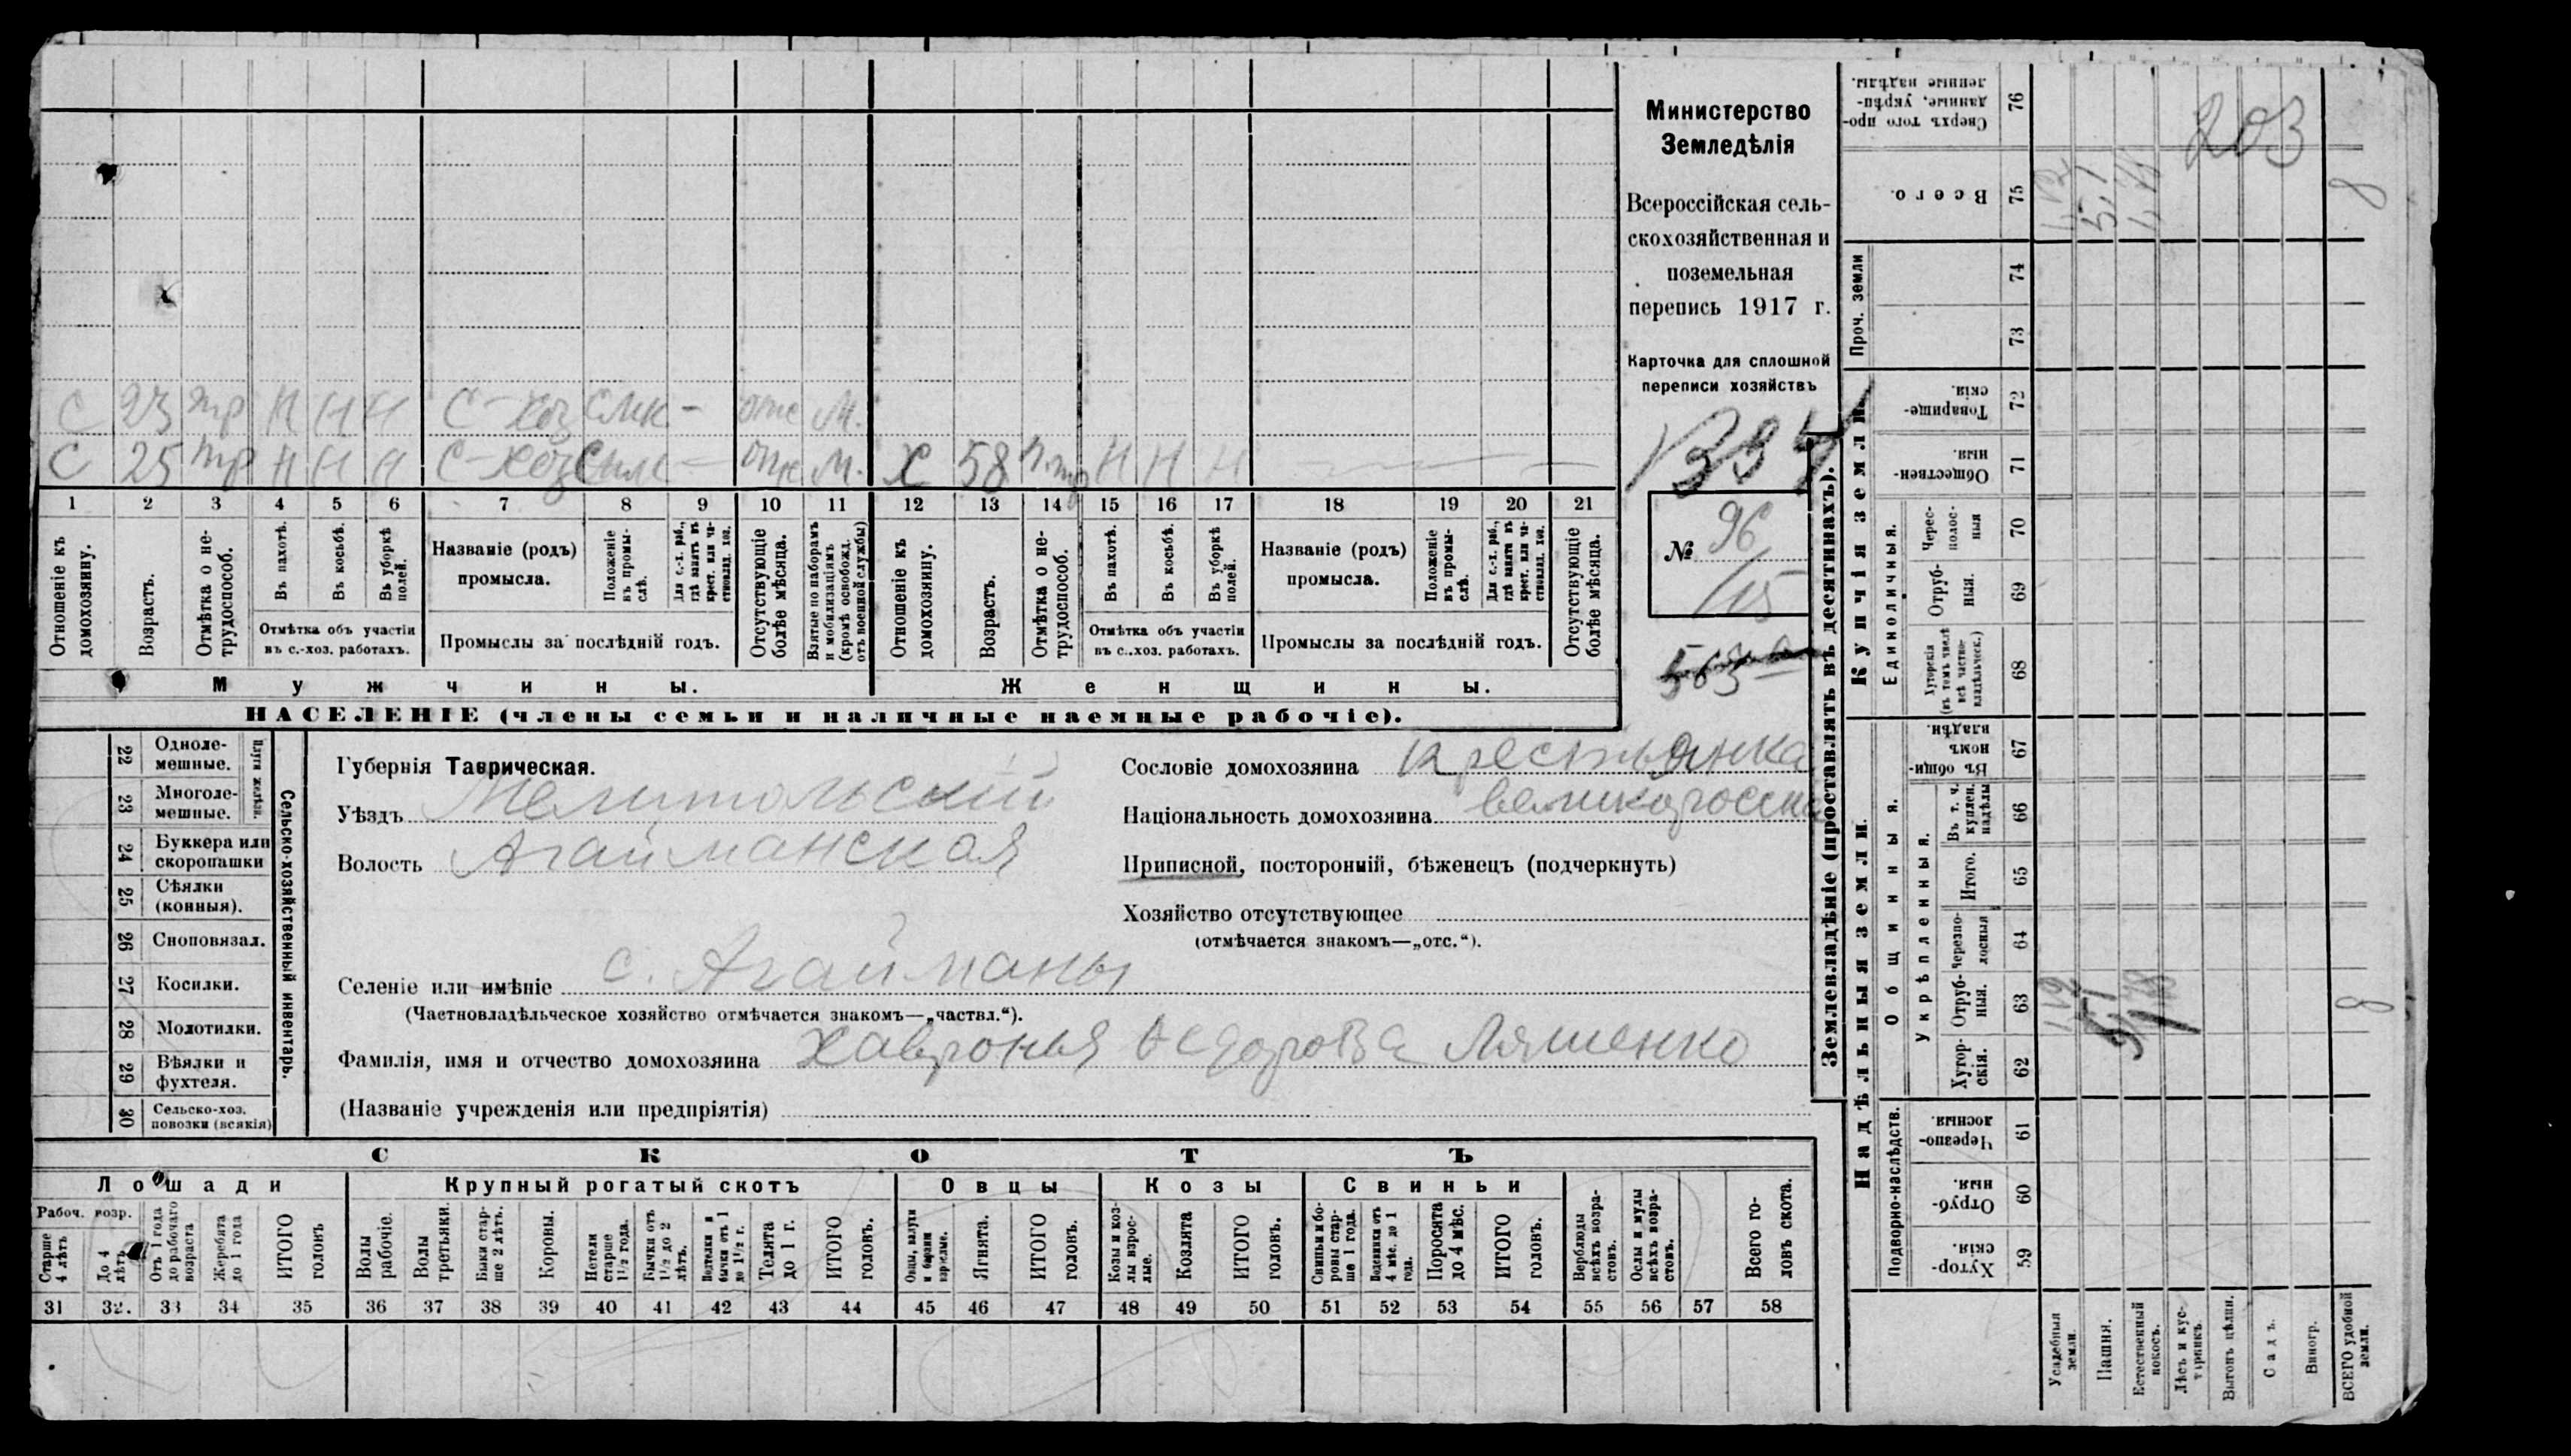 Министерство
Земледѣлія
Всероссійская сель-
скохозяйственная и
поземельная
перепись 1917 г.
Карточка для сплошной
переписи хозяйствъ
1334
№ 96
115
563
С 23 тр Н Н Н С-хоз – отс М.
С 25 тр Н Н Н С-хоз – отс М. Х 58 Н Н Н
1 2 3 4 5 6 7 8 9 10 11 12 13 14 15 16 17 18 19 20 21
Отношеніе къ домохозяину.
Возрастъ.
Отмѣтка о не-трудоспособ.
Въ пахотѣ.
Въ косьбѣ.
Въ уборкѣ полей.
Отмѣтка объ участіи
въ с.-хоз. работахъ.
Названіе (родъ)
промысла.
Положеніе въ промы-слѣ.
Для с.-х. раб., гдѣ занятъ въ крест. или ча-стновлад. хоз.
Промыслы за послѣдній годъ.
Отсутствующіе болѣе мѣсяца.
Взятые по наборамъ и мобилизаціямъ (кромѣ освобожд. отъ военной службы)
Отношеніе къ домохозяину.
Возрастъ.
Отмѣтка о не-трудоспособ.
Въ пахотѣ.
Въ косьбѣ.
Въ уборкѣ полей.
Отмѣтка объ участіи
въ с..хоз. работахъ.
Названіе (родъ)
промысла.
Положеніе въ промы-слѣ.
Для с.-х. раб., гдѣ занята въ крест. или ча-стновлад. хоз.
Промыслы за послѣдній годъ.
Отсутствующіе болѣе мѣсяца.
Мужчины.
Женщины.
НАСЕЛЕНІЕ (члены семьи и наличные наемные рабочіе).
22 Одноле-мешные.
23 Многоле-мешные.
24 Буккера или скоропашки
25 Сѣялки (конныя).
26 Сноповязал.
27 Косилки.
28 Молотилки.
29 Вѣялки и фухтеля.
30 Сельско-хоз. повозки (всякія)
Сельско-хозяйственный инвентарь.
Губернія Таврическая.
Уѣздъ Мелитопольскій
Волость Агайманская
Селеніе или имѣніе с. Агайманы
(Частновладѣльческое хозяйство отмѣчается знакомъ—„частвл.“).
Фамилія, имя и отчество домохозяина Хавронья Ѳедорова Ляшенко
(Названіе учрежденія или предпріятія)
Сословіе домохозяина крестьянка
Національность домохозяина
Приписной, посторонній, бѣженецъ (подчеркнуть)
Хозяйство отсутствующее
(отмѣчается знакомъ—„отс.“).
СКОТЪ
Лошади
Крупный рогатый скотъ
Овцы
Козы
Свиньи
Рабоч. возр.
Старше 4 лѣтъ
До 4 лѣтъ
Отъ 1 года до рабочаго возраста
Жеребята до 1 года
ИТОГО головъ
Волы рабочіе.
Волы третьяки.
Быки стар-ше 2 лѣтъ.
Коровы.
Нетели старше 1 1/2 года.
Бычки отъ 1 1/2 до 2 лѣтъ.
Телки и бычки отъ 1 до 1 1/2 г.
Телята до 1 г.
ИТОГО головъ.
Овцы, валухи и бараны взрослые.
Ягнята.
ИТОГО головъ.
Козы и коз-лы взрос-лые.
Козлята
ИТОГО головъ.
Свиньи и бо-ровы стар-ше 1 года.
Подсвинки отъ 4 мѣс. до 1 года.
Поросята до 4 мѣс.
ИТОГО головъ.
Верблюды всѣхъ возра-стовъ.
Ослы и мулы всѣхъ возра-стовъ.
Всего го-ловъ скота.
31 32. 33 34 35 36 37 38 39 40 41 42 43 44 45 46 47 48 49 50 51 52 53 54 55 56 57 58
Землевладѣніе (проставлять въ десятинахъ).
Купчія земли.
Надѣльныя земли.
76 Сверхъ того про-данные, укрѣп-ленные надѣлы.
75 Всего.
Проч. земли
74
73
72 Товарище-скія.
71 Обществен-ныя.
Единоличныя.
70 Черес-полос-ныя
69 Отруб-ныя.
68 Хуторскія (въ томъ числѣ всѣ частно-владѣльческ.)
67 Въ общи-номъ владѣн.
Общинныя.
Укрѣпленныя.
66 Въ т. ч. куплен. надѣлы
65 Итого.
64 Черезпо-лосныя
63 Отруб-ныя.
62 Хутор-скія.
Подворно-наслѣдств.
61 Черезпо-лосныя.
60 Отруб-ныя.
59 Хутор-скія.
Усадебныя земли.
Пашня.
Естественный покосъ.
Лѣсъ и кус-тарникъ.
Выгонъ цѣлин.
Садъ.
Виногр.
ВСЕГО удобной земли.
203
8
8